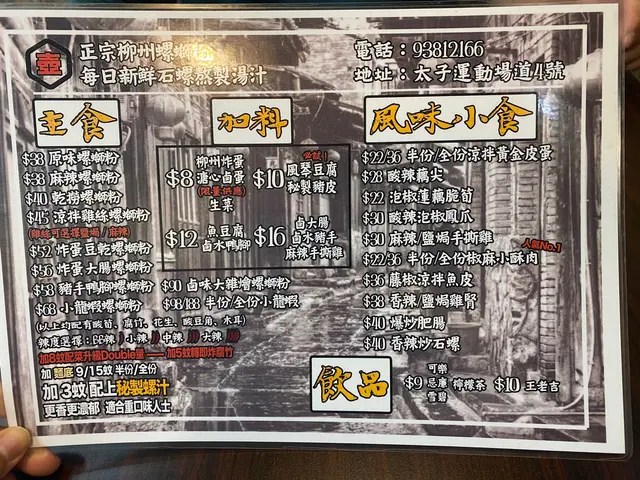 壺
正宗柳州螺螄粉
每日新鮮石螺熬製湯汁
電話：93812166
地址：太子運動場道4號
主食
$38 原味螺螄粉
$38 麻辣螺螄粉
$40 乾撈螺螄粉
$45 涼拌雞絲螺螄粉
(雞絲可選擇鹽焗/麻辣)
$52 炸蛋豆乾螺螄粉
$56 炸蛋大腸螺螄粉
$58 豬手鴨腳螺螄粉
$68 小龍蝦螺螄粉
(以上均配有酸筍、腐竹、花生、酸豆角、木耳)
辣度選擇：BB辣 小辣 中辣 大辣
加8蚊配菜升級Double量 —— 加5蚊轉即炸腐竹
加 麵底 9/15蚊 半份/全份
加 3蚊 配上秘製螺汁
更香更濃郁 適合重口味人士
加料
$8 柳州炸蛋
溏心鹵蛋
(限量供應)
生菜
$10 必試！
風琴豆腐
秘製豬皮
$12 魚豆腐
鹵水鴨腳
$16 鹵大腸
鹵水豬手
麻辣手撕雞
$90 鹵味大雜燴螺螄粉
$98/188 半份/全份小龍蝦
風味小食
$22/36 半份/全份涼拌黃金皮蛋
$28 酸辣藕尖
$22 泡椒蓮藕脆筍
$30 酸辣泡椒鳳爪
$30 麻辣/鹽焗手撕雞
人氣No.1
$22/36 半份/全份椒麻小酥肉
$36 藤椒涼拌魚皮
$38 香辣/鹽焗雞腎
$40 爆炒肥腸
$40 香辣炒石螺
飲品
$9 可樂
忌廉
雪碧
檸檬茶
$10 王老吉